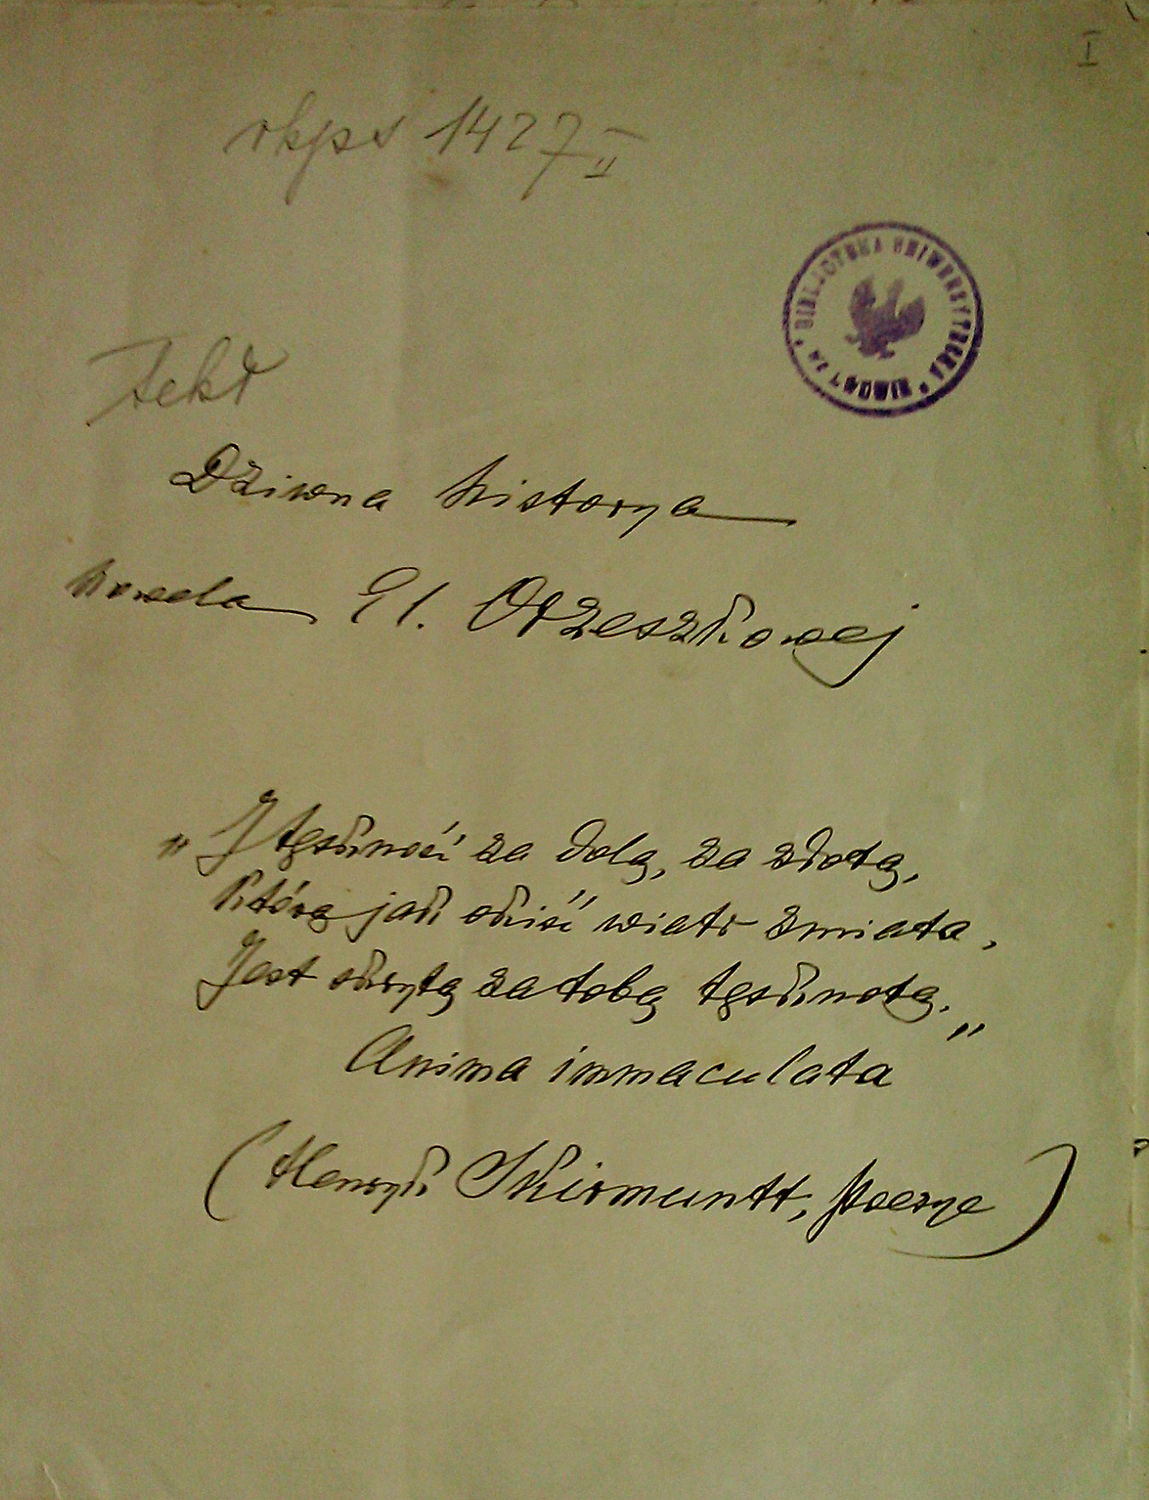 I
rkps 1427 II
BIBLIOTEKA UNIWERSYTECKA
WE LWOWIE
Tekt
Dziwna historya
nowela El. Orzeszkowej
„I tęskność za dolą, za złotą,
Którą jak okiść wiatr zmiata,
Jest skrytą za tobą tęsknotą.„
Anima immaculata
(Henryk Skirmuntt, Poezye)